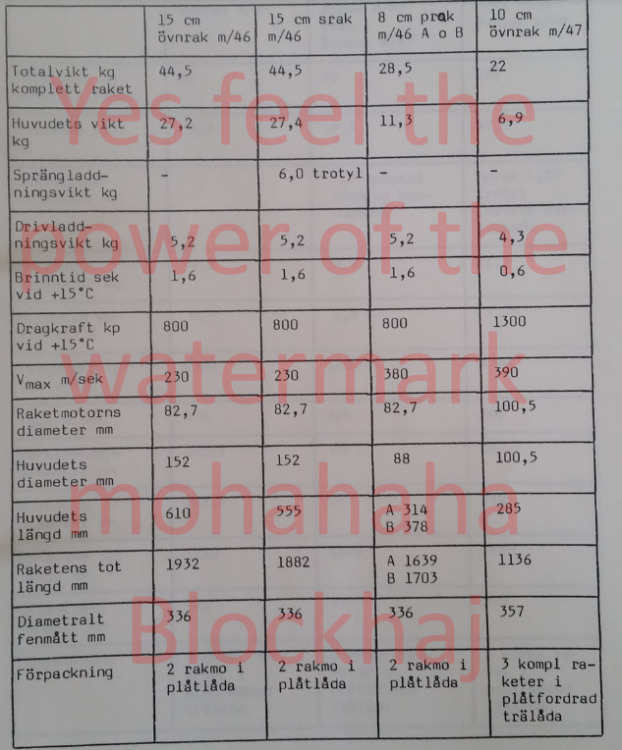 15 cm övnrak m/46 15 cm srak m/46 8 cm prak m/46 A o B 10 cm övnrak m/47
Totalvikt kg komplett raket 44,5 44,5 28,5 22
Huvudets vikt kg 27,2 27,4 11,3 6,9
Sprängladd-ningsvikt kg - 6,0 trotyl - -
Drivladd-ningsvikt kg 5,2 5,2 5,2 4,3
Brinntid sek vid +15°C 1,6 1,6 1,6 0,6
Dragkraft kp vid +15°C 800 800 800 1300
Vmax m/sek 230 230 380 390
Raketmotorns diameter mm 82,7 82,7 82,7 100,5
Huvudets diameter mm 152 152 88 100,5
Huvudets längd mm 610 555 A 314 B 378 285
Raketens tot längd mm 1932 1882 A 1639 B 1703 1136
Diametralt fenmått mm 336 336 336 357
Förpackning 2 rakmo i plåtlåda 2 rakmo i plåtlåda 2 rakmo i plåtlåda 3 kompl ra-keter i plåtfordrad trälåda
Yes feel the
power of the
watermark
mohahaha
Blockhaj